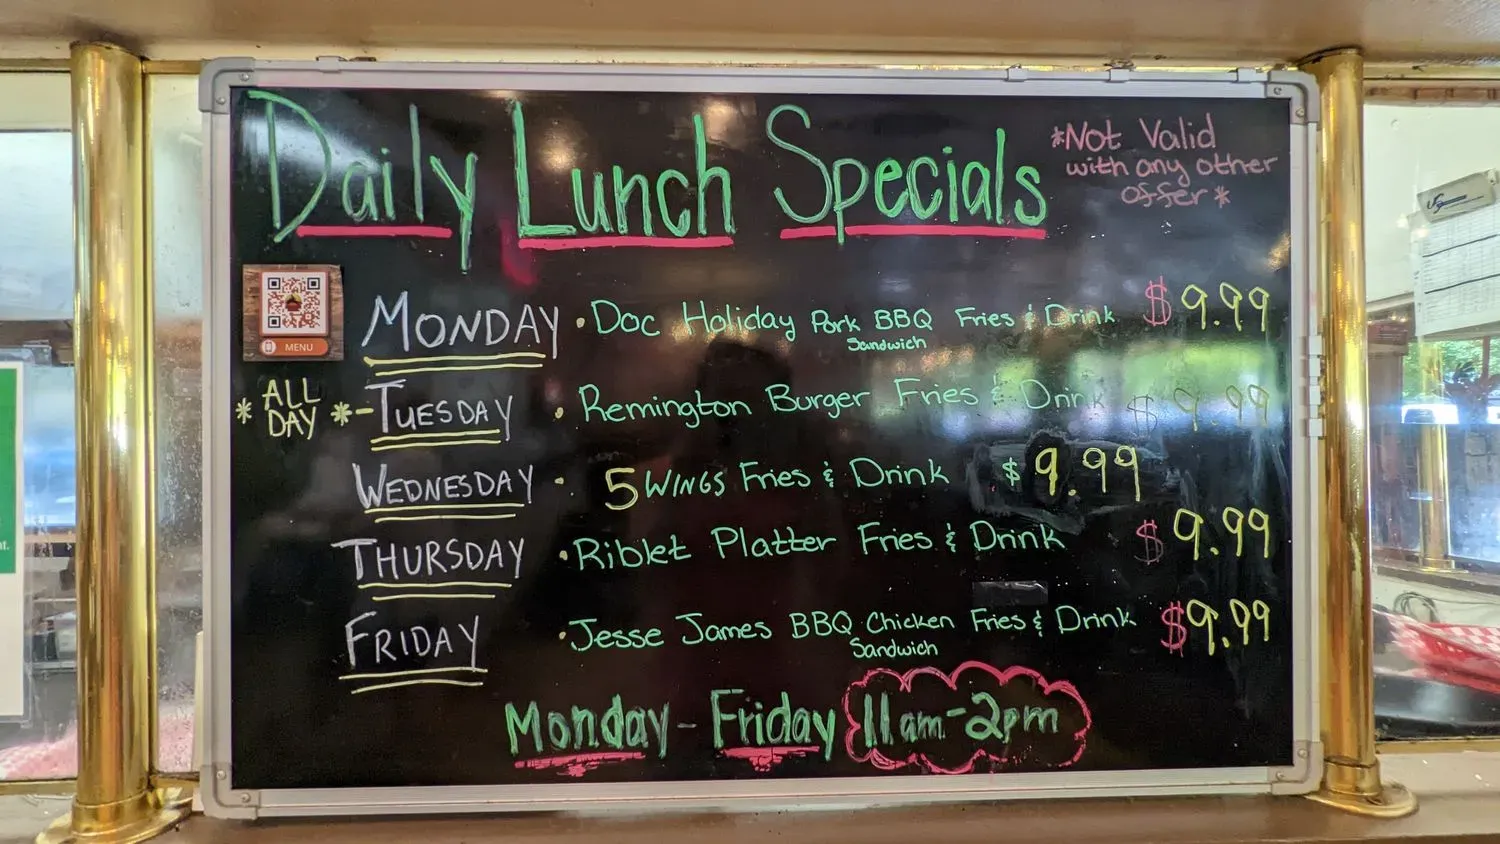 Daily Lunch Specials
*Not Valid
with any other
offer*
MENU
MONDAY • Doc Holiday Pork BBQ Fries & Drink $9.99
Sandwich
* ALL DAY * - TUESDAY • Remington Burger Fries & Drink $9.99
WEDNESDAY • 5 WINGS Fries & Drink $9.99
THURSDAY • Riblet Platter Fries & Drink $9.99
FRIDAY • Jesse James BBQ Chicken Fries & Drink $9.99
Sandwich
Monday - Friday 11am-2pm